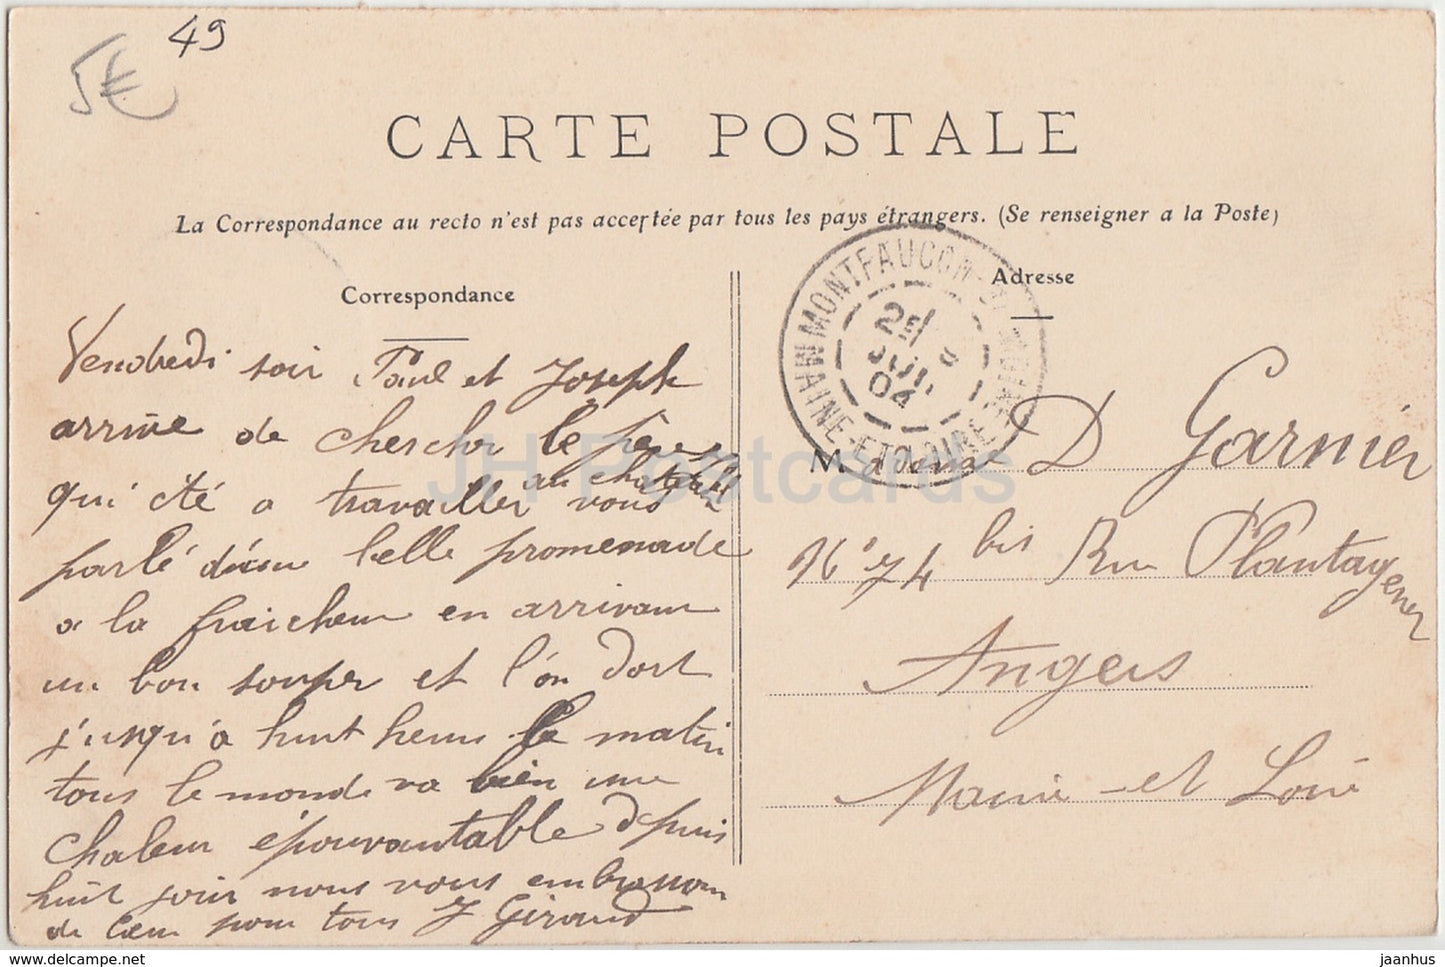 49
5€
CARTE POSTALE
La Correspondance au recto n'est pas acceptée par tous les pays étrangers. (Se renseigner a la Poste)
Correspondance
Vendredi soir Paul et Joseph
arrive de chercher le père
qui été a travailler au chateau vous
parlé d'une belle promenade
a la fraicheur en arrivant
un bon souper et l'on dort
j'usqu'a huit heure le matin
tous le monde va bien une
chaleur épouvantable depuis
huit jour nous vous embrasson
de cœur pour tous J Giraud
Adresse
MONTFAUCON-SUR-MOINE
MAINE-ET-LOIRE
25
JUIL
04
Madame D Garnier
N° 74 bis Rue Plantagenez
Angers
Maine-et Loire
JH Postcards
jaanhus